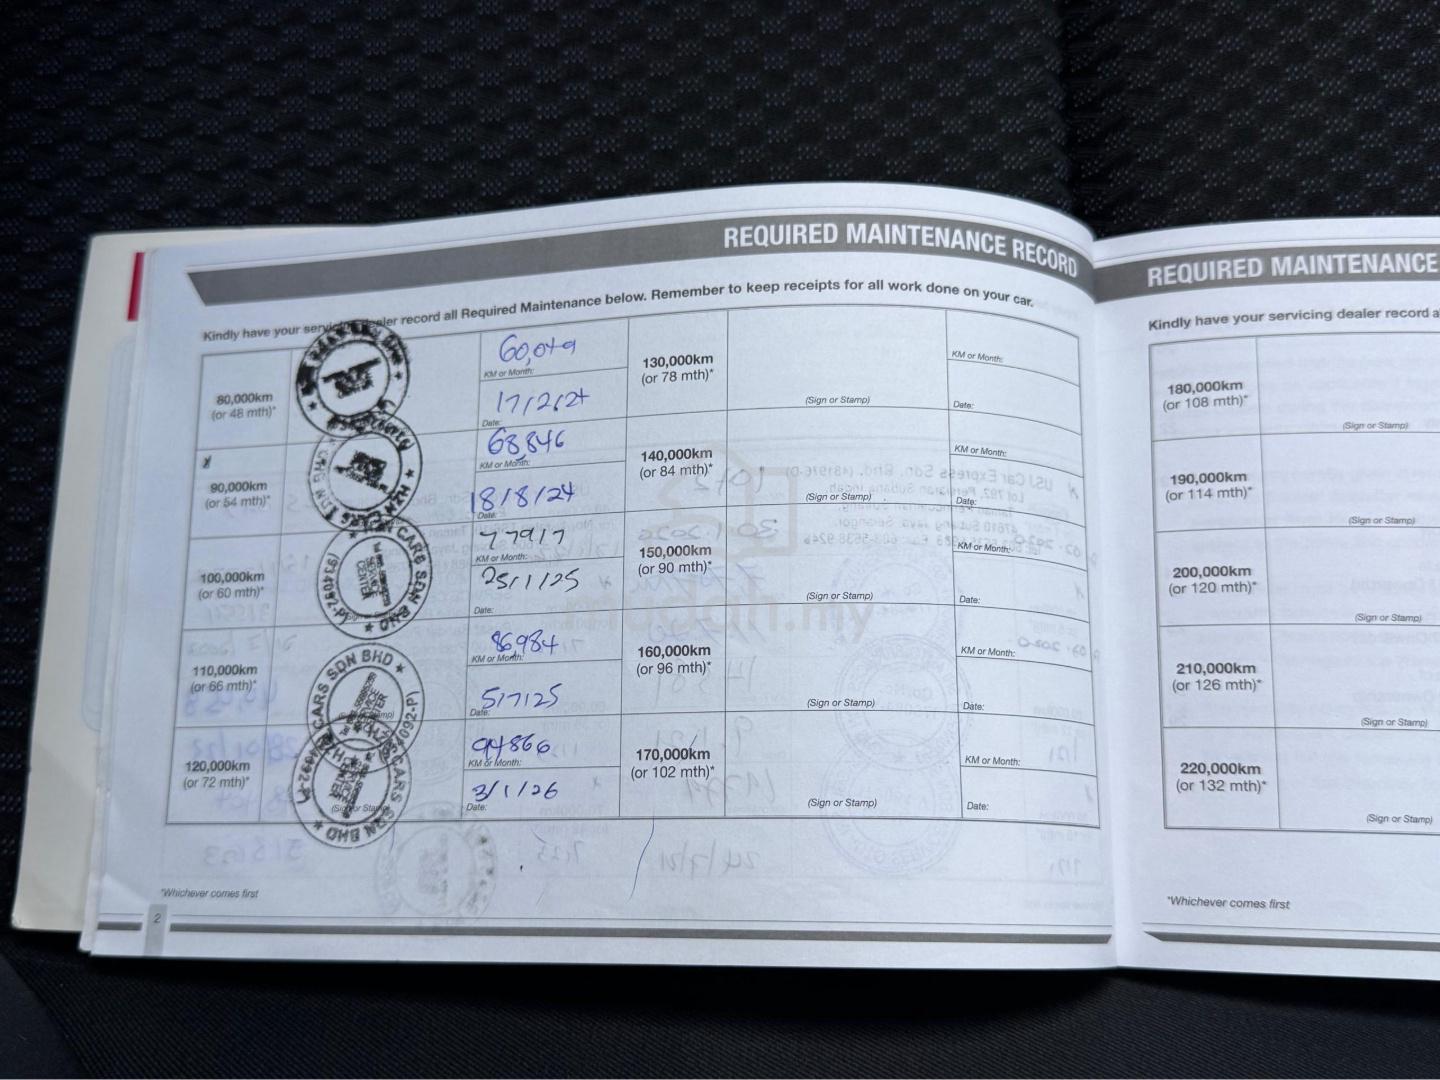 REQUIRED MAINTENANCE RECORD
Kindly have your servicing dealer record all Required Maintenance below. Remember to keep receipts for all work done on your car.
80,000km
(or 48 mth)*
60,049
KM or Month:
17/2/24
Date:
90,000km
(or 54 mth)*
68,846
KM or Month:
18/8/24
Date:
100,000km
(or 60 mth)*
77917
KM or Month:
25/1/25
Date:
110,000km
(or 66 mth)*
86984
KM or Month:
5/7/25
Date:
120,000km
(or 72 mth)*
(Sign or Stamp)
94866
KM or Month:
3/1/26
Date:
CARS SDN BHD
SERVICE
CENTER
130,000km
(or 78 mth)*
(Sign or Stamp)
KM or Month:
Date:
140,000km
(or 84 mth)*
(Sign or Stamp)
KM or Month:
Date:
150,000km
(or 90 mth)*
(Sign or Stamp)
KM or Month:
Date:
160,000km
(or 96 mth)*
(Sign or Stamp)
KM or Month:
Date:
170,000km
(or 102 mth)*
(Sign or Stamp)
KM or Month:
Date:
mudah.my
*Whichever comes first
2
REQUIRED MAINTENANCE
Kindly have your servicing dealer record
180,000km
(or 108 mth)*
(Sign or Stamp)
190,000km
(or 114 mth)*
(Sign or Stamp)
200,000km
(or 120 mth)*
(Sign or Stamp)
210,000km
(or 126 mth)*
(Sign or Stamp)
220,000km
(or 132 mth)*
(Sign or Stamp)
*Whichever comes first